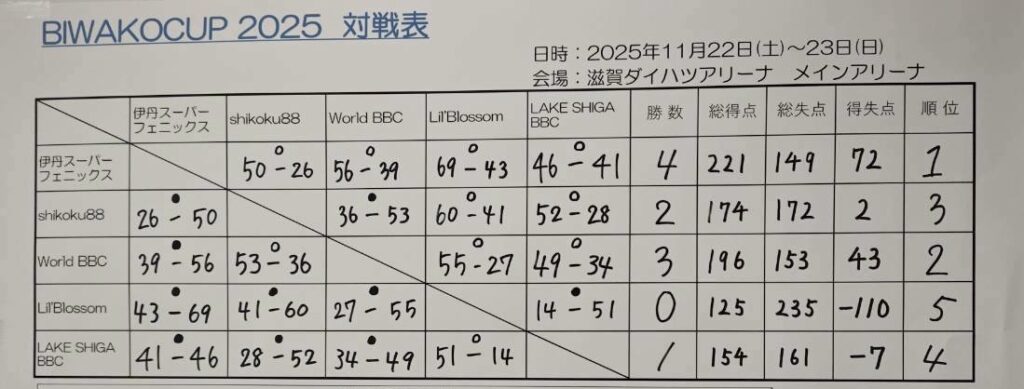 BIWAKOCUP 2025 対戦表
日時：2025年11月22日(土)～23日(日)
会場：滋賀ダイハツアリーナ メインアリーナ
伊丹スーパーフェニックス shikoku88 World BBC Lil'Blossom LAKE SHIGA BBC 勝数 総得点 総失点 得失点 順位
伊丹スーパーフェニックス ○ 50-26 ○ 56-39 ○ 69-43 ○ 46-41 4 221 149 72 1
shikoku88 ● 26-50 ● 36-53 ○ 60-41 ○ 52-28 2 174 172 2 3
World BBC ● 39-56 ○ 53-36 ○ 55-27 ○ 49-34 3 196 153 43 2
Lil'Blossom ● 43-69 ● 41-60 ● 27-55 ● 14-51 0 125 235 -110 5
LAKE SHIGA BBC ● 41-46 ● 28-52 ● 34-49 ○ 51-14 1 154 161 -7 4